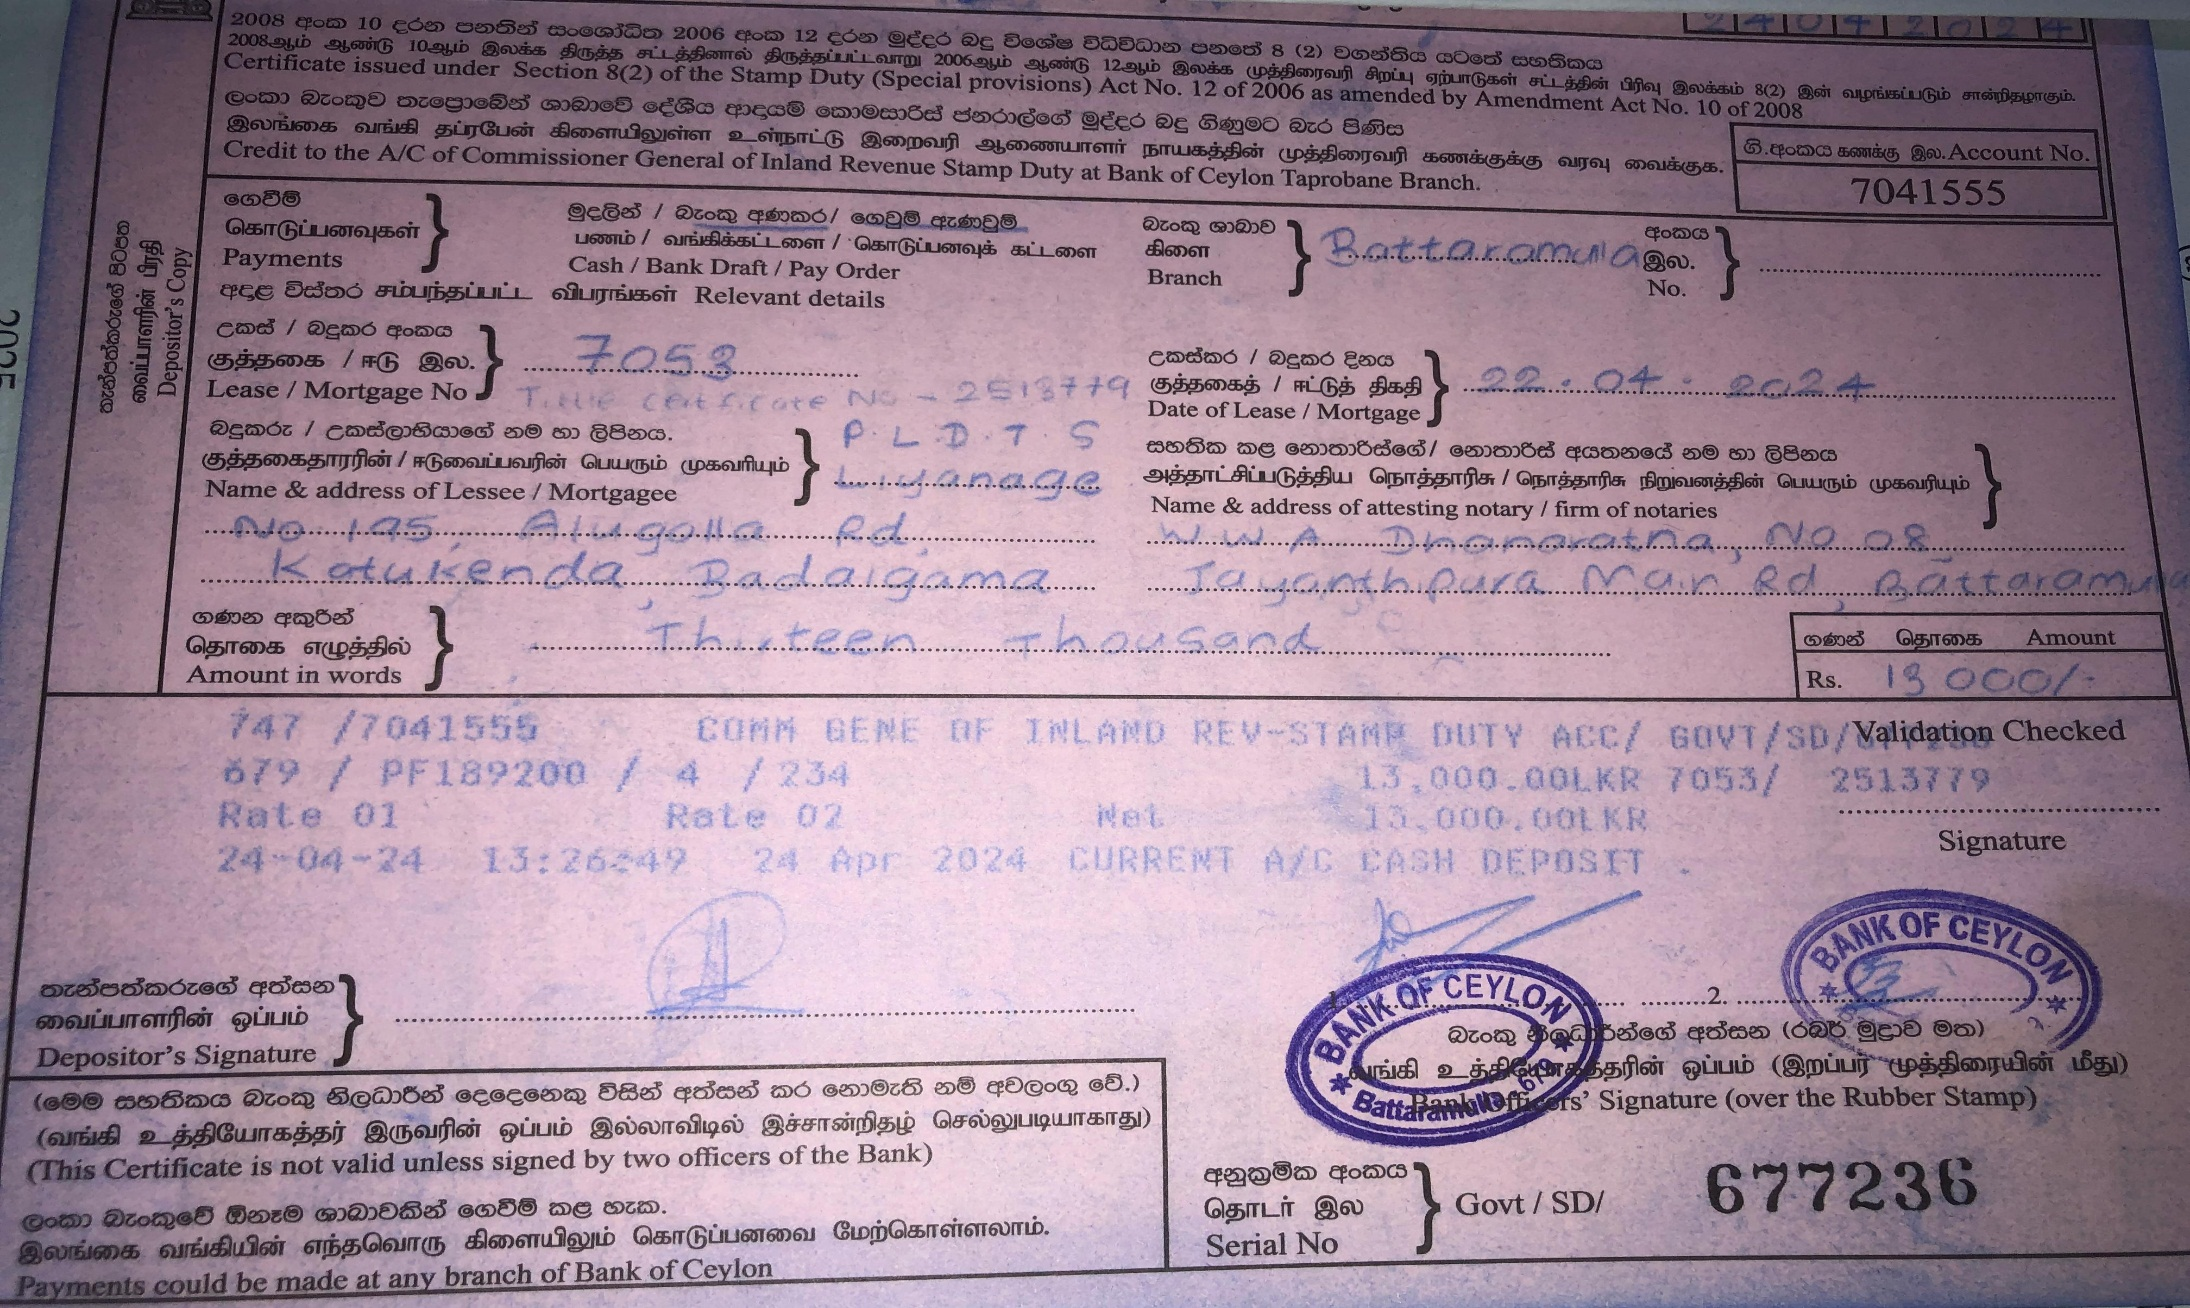 24042024
2008 අංක 10 දරන පනතින් සංශෝධිත 2006 අංක 12 දරන මුද්දර බදු විශේෂ විධිවිධාන පනතේ 8 (2) වගන්තිය යටතේ සහතිකය
2008ஆம் ஆண்டு 10ஆம் இலக்க திருத்த சட்டத்தினால் திருத்தப்பட்டவாறு 2006ஆம் ஆண்டு 12ஆம் இலக்க முத்திரைவரி சிறப்பு ஏற்பாடுகள் சட்டத்தின் பிரிவு இலக்கம் 8(2) இன் வழங்கப்படும் சான்றிதழாகும்.
Certificate issued under Section 8(2) of the Stamp Duty (Special provisions) Act No. 12 of 2006 as amended by Amendment Act No. 10 of 2008
ලංකා බැංකුව තැප්‍රොබේන් ශාඛාවේ දේශීය ආදායම් කොමසාරිස් ජනරාල්ගේ මුද්දර බදු ගිණුමට බැර පිණිස
இலங்கை வங்கி தப்ரபேன் கிளையிலுள்ள உள்நாட்டு இறைவரி ஆணையாளர் நாயகத்தின் முத்திரைவரி கணக்குக்கு வரவு வைக்குக.
Credit to the A/C of Commissioner General of Inland Revenue Stamp Duty at Bank of Ceylon Taprobane Branch.
ගි.අංකය கணக்கு இல. Account No.
7041555
තැන්පත්කරුගේ පිටපත
வைப்பாளரின் பிரதி
Depositor's Copy
ගෙවීම්
கொடுப்பனவுகள்
Payments
මුදලින් / බැංකු අණකර/ ගෙවුම් ඇණවුම්
பணம் / வங்கிக்கட்டளை / கொடுப்பனவுக் கட்டளை
Cash / Bank Draft / Pay Order
බැංකු ශාඛාව
கிளை
Branch
Battaramulla
අංකය
இல.
No.
අදාළ විස්තර சம்பந்தப்பட்ட விபரங்கள் Relevant details
උකස් / බදුකර අංකය
குத்தகை / ஈடு இல.
Lease / Mortgage No
7053
Title certificate No - 2513779
උකස්කර / බදුකර දිනය
குத்தகைத் / ஈட்டுத் திகதி
Date of Lease / Mortgage
22.04.2024
බදුකරු / උකස්ලාභියාගේ නම හා ලිපිනය.
குத்தகைதாரரின் / ஈடுவைப்பவரின் பெயரும் முகவரியும்
Name & address of Lessee / Mortgagee
P.L.D.T.S
Liyanage
No 195, Alugolla Rd,
Katukenda, Badalgama
සහතික කළ නොතාරිස්ගේ/ නොතාරිස් අයතනයේ නම හා ලිපිනය
அத்தாட்சிப்படுத்திய நொத்தாரிசு / நொத்தாரிசு நிறுவனத்தின் பெயரும் முகவரியும்
Name & address of attesting notary / firm of notaries
W.W.A Dhanaratna, No 08
Jayanthipura Main Rd, Battaramulla
ගණන අකුරින්
தொகை எழுத்தில்
Amount in words
Thirteen Thousand
ගණන් தொகை Amount
Rs. 13 000/-
747 /7041555 COMM GENE OF INLAND REV-STAMP DUTY ACC/ GOVT/SD/
Validation Checked
679 / PF189200 / 4 /234 13,000.00LKR 7053/ 2513779
Rate 01 Rate 02 Net 13,000.00LKR
24-04-24 13:26:49 24 Apr 2024 CURRENT A/C CASH DEPOSIT .
Signature
තැන්පත්කරුගේ අත්සන
வைப்பாளரின் ஒப்பம்
Depositor's Signature
BANK OF CEYLON
Battaramulla 679
BANK OF CEYLON
1.
2.
බැංකු නිලධාරීන්ගේ අත්සන (රබර් මුද්‍රාව මත)
வங்கி உத்தியோகத்தரின் ஒப்பம் (இறப்பர் முத்திரையின் மீது)
Bank Officers' Signature (over the Rubber Stamp)
(මෙම සහතිකය බැංකු නිලධාරීන් දෙදෙනෙකු විසින් අත්සන් කර නොමැති නම් අවලංගු වේ.)
(வங்கி உத்தியோகத்தர் இருவரின் ஒப்பம் இல்லாவிடில் இச்சான்றிதழ் செல்லுபடியாகாது)
(This Certificate is not valid unless signed by two officers of the Bank)
ලංකා බැංකුවේ ඕනෑම ශාඛාවකින් ගෙවීම් කළ හැක.
இலங்கை வங்கியின் எந்தவொரு கிளையிலும் கொடுப்பனவை மேற்கொள்ளலாம்.
Payments could be made at any branch of Bank of Ceylon
අනුක්‍රමික අංකය
தொடர் இல
Serial No
Govt / SD/ 677236